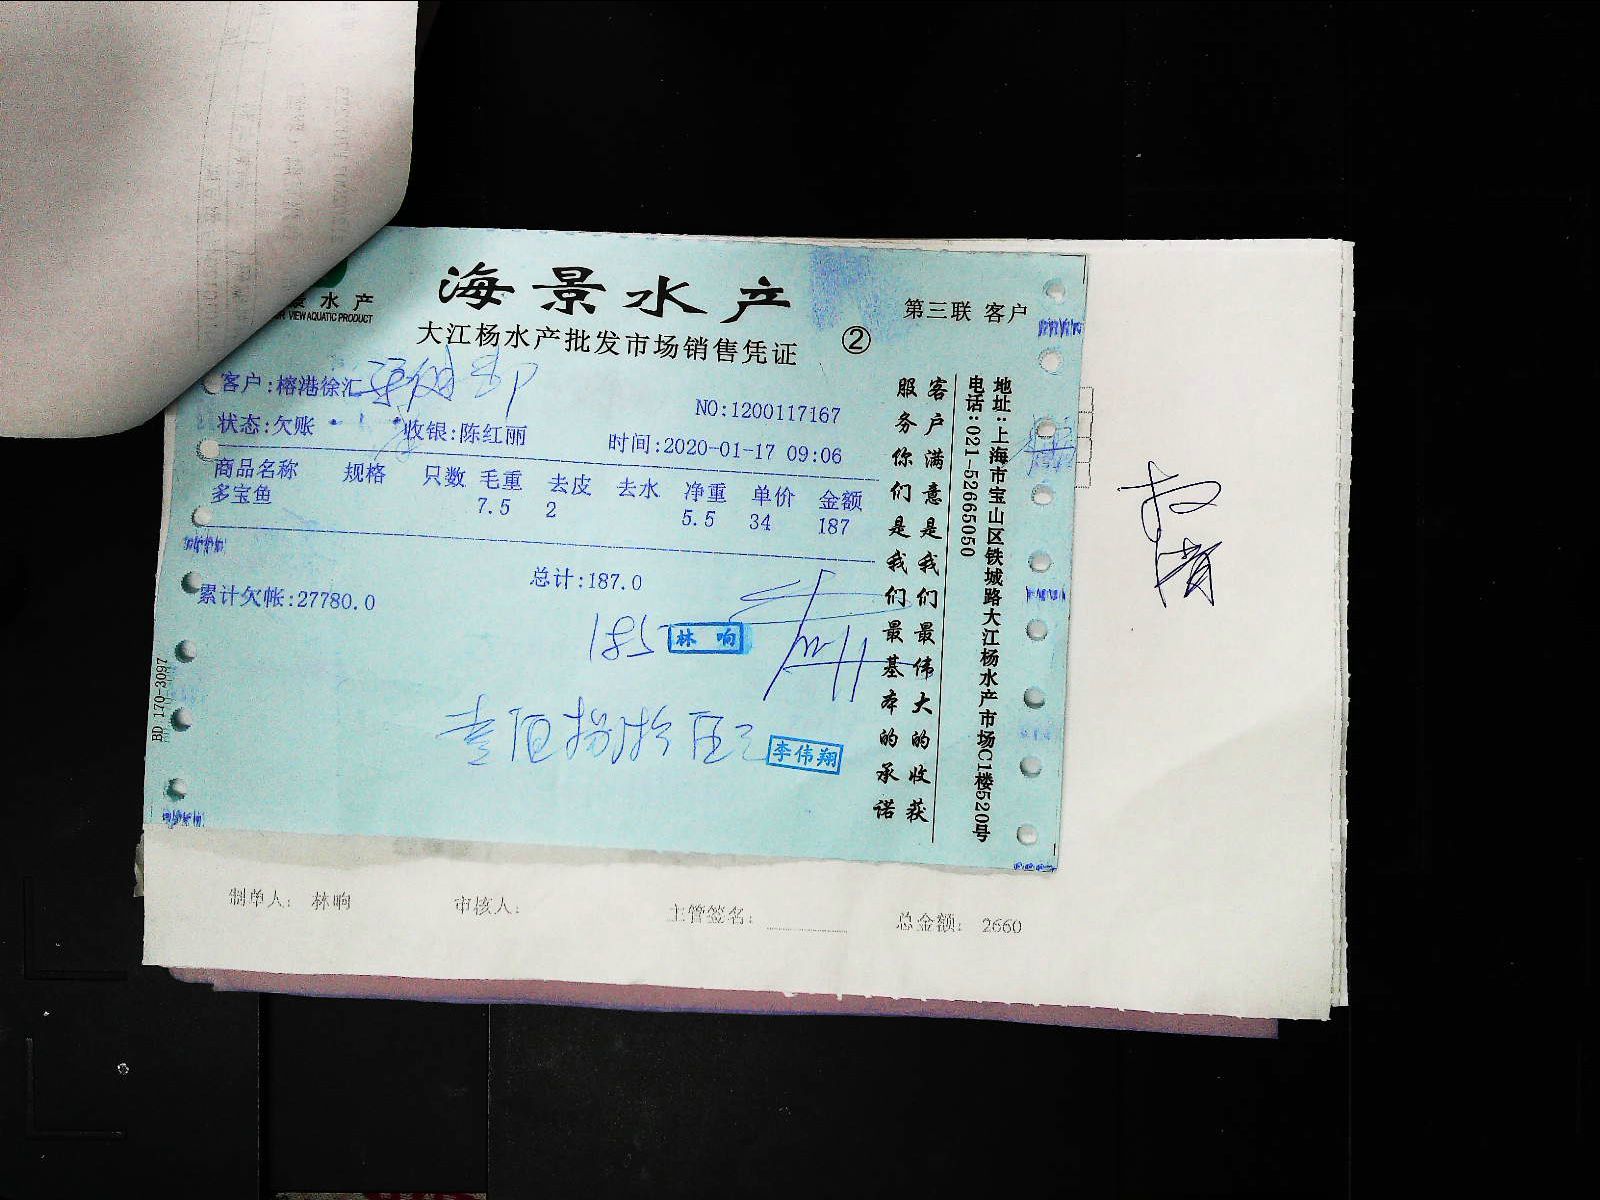 海景水产
水产
VIEW AQUATIC PRODUCT
大江杨水产批发市场销售凭证
②
第三联 客户
客户:榕港徐汇
NO:1200117167
状态:欠账 收银:陈红丽 时间:2020-01-17 09:06
商品名称 规格 只数 毛重 去皮 去水 净重 单价 金额
多宝鱼 7.5 2 5.5 34 187
总计:187.0
累计欠帐:27780.0
185
林响
李伟翔
客户满意是我们最伟大的收获
服务你们是我们最基本的承诺
地址:上海市宝山区铁城路大江杨水产市场C1楼520号
电话:021-52665050
BD 170-3097
制单人: 林响 审核人: 主管签名: 总金额: 2660